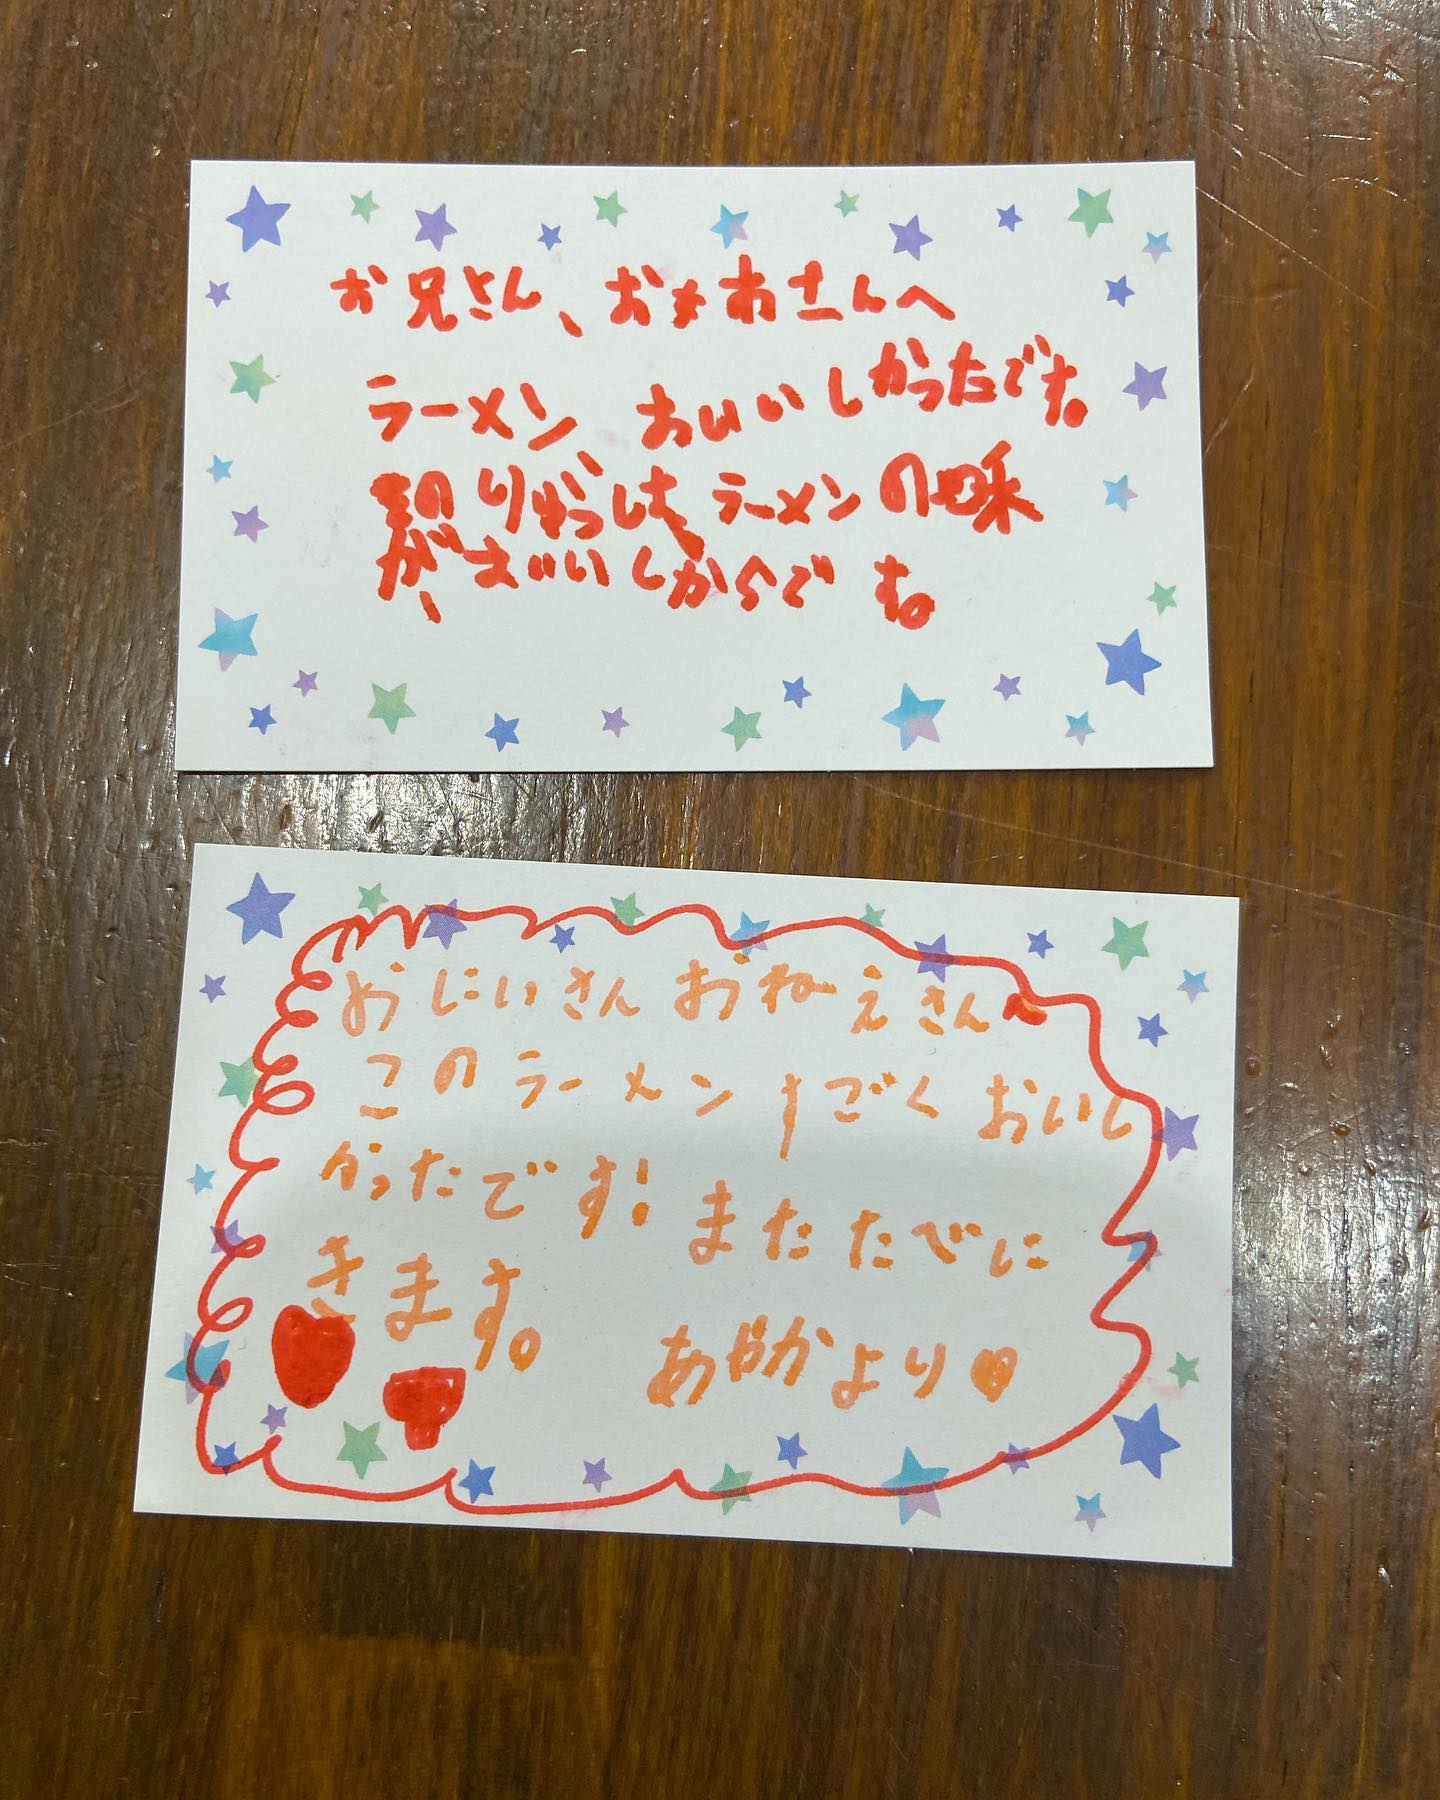 お兄さん、おねえさんへ
ラーメン、おいいしかったです。
ラーメンの味
が、
おにいさん おねえさんへ
このラーメンすごくおいし
かったです! またたべに
きます。
あやかより